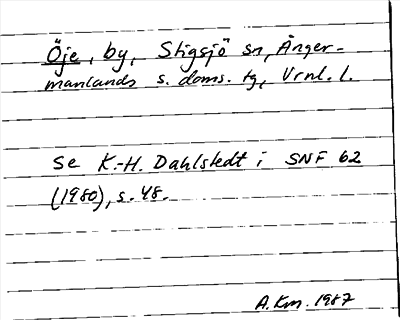 Öje, by, Stigsjö sn, Ånger-
manlands s. doms. tg, Vrnl. l.
se K.-H. Dahlstedt i SNF 62
(1980), s. 48.
A. Km. 1987